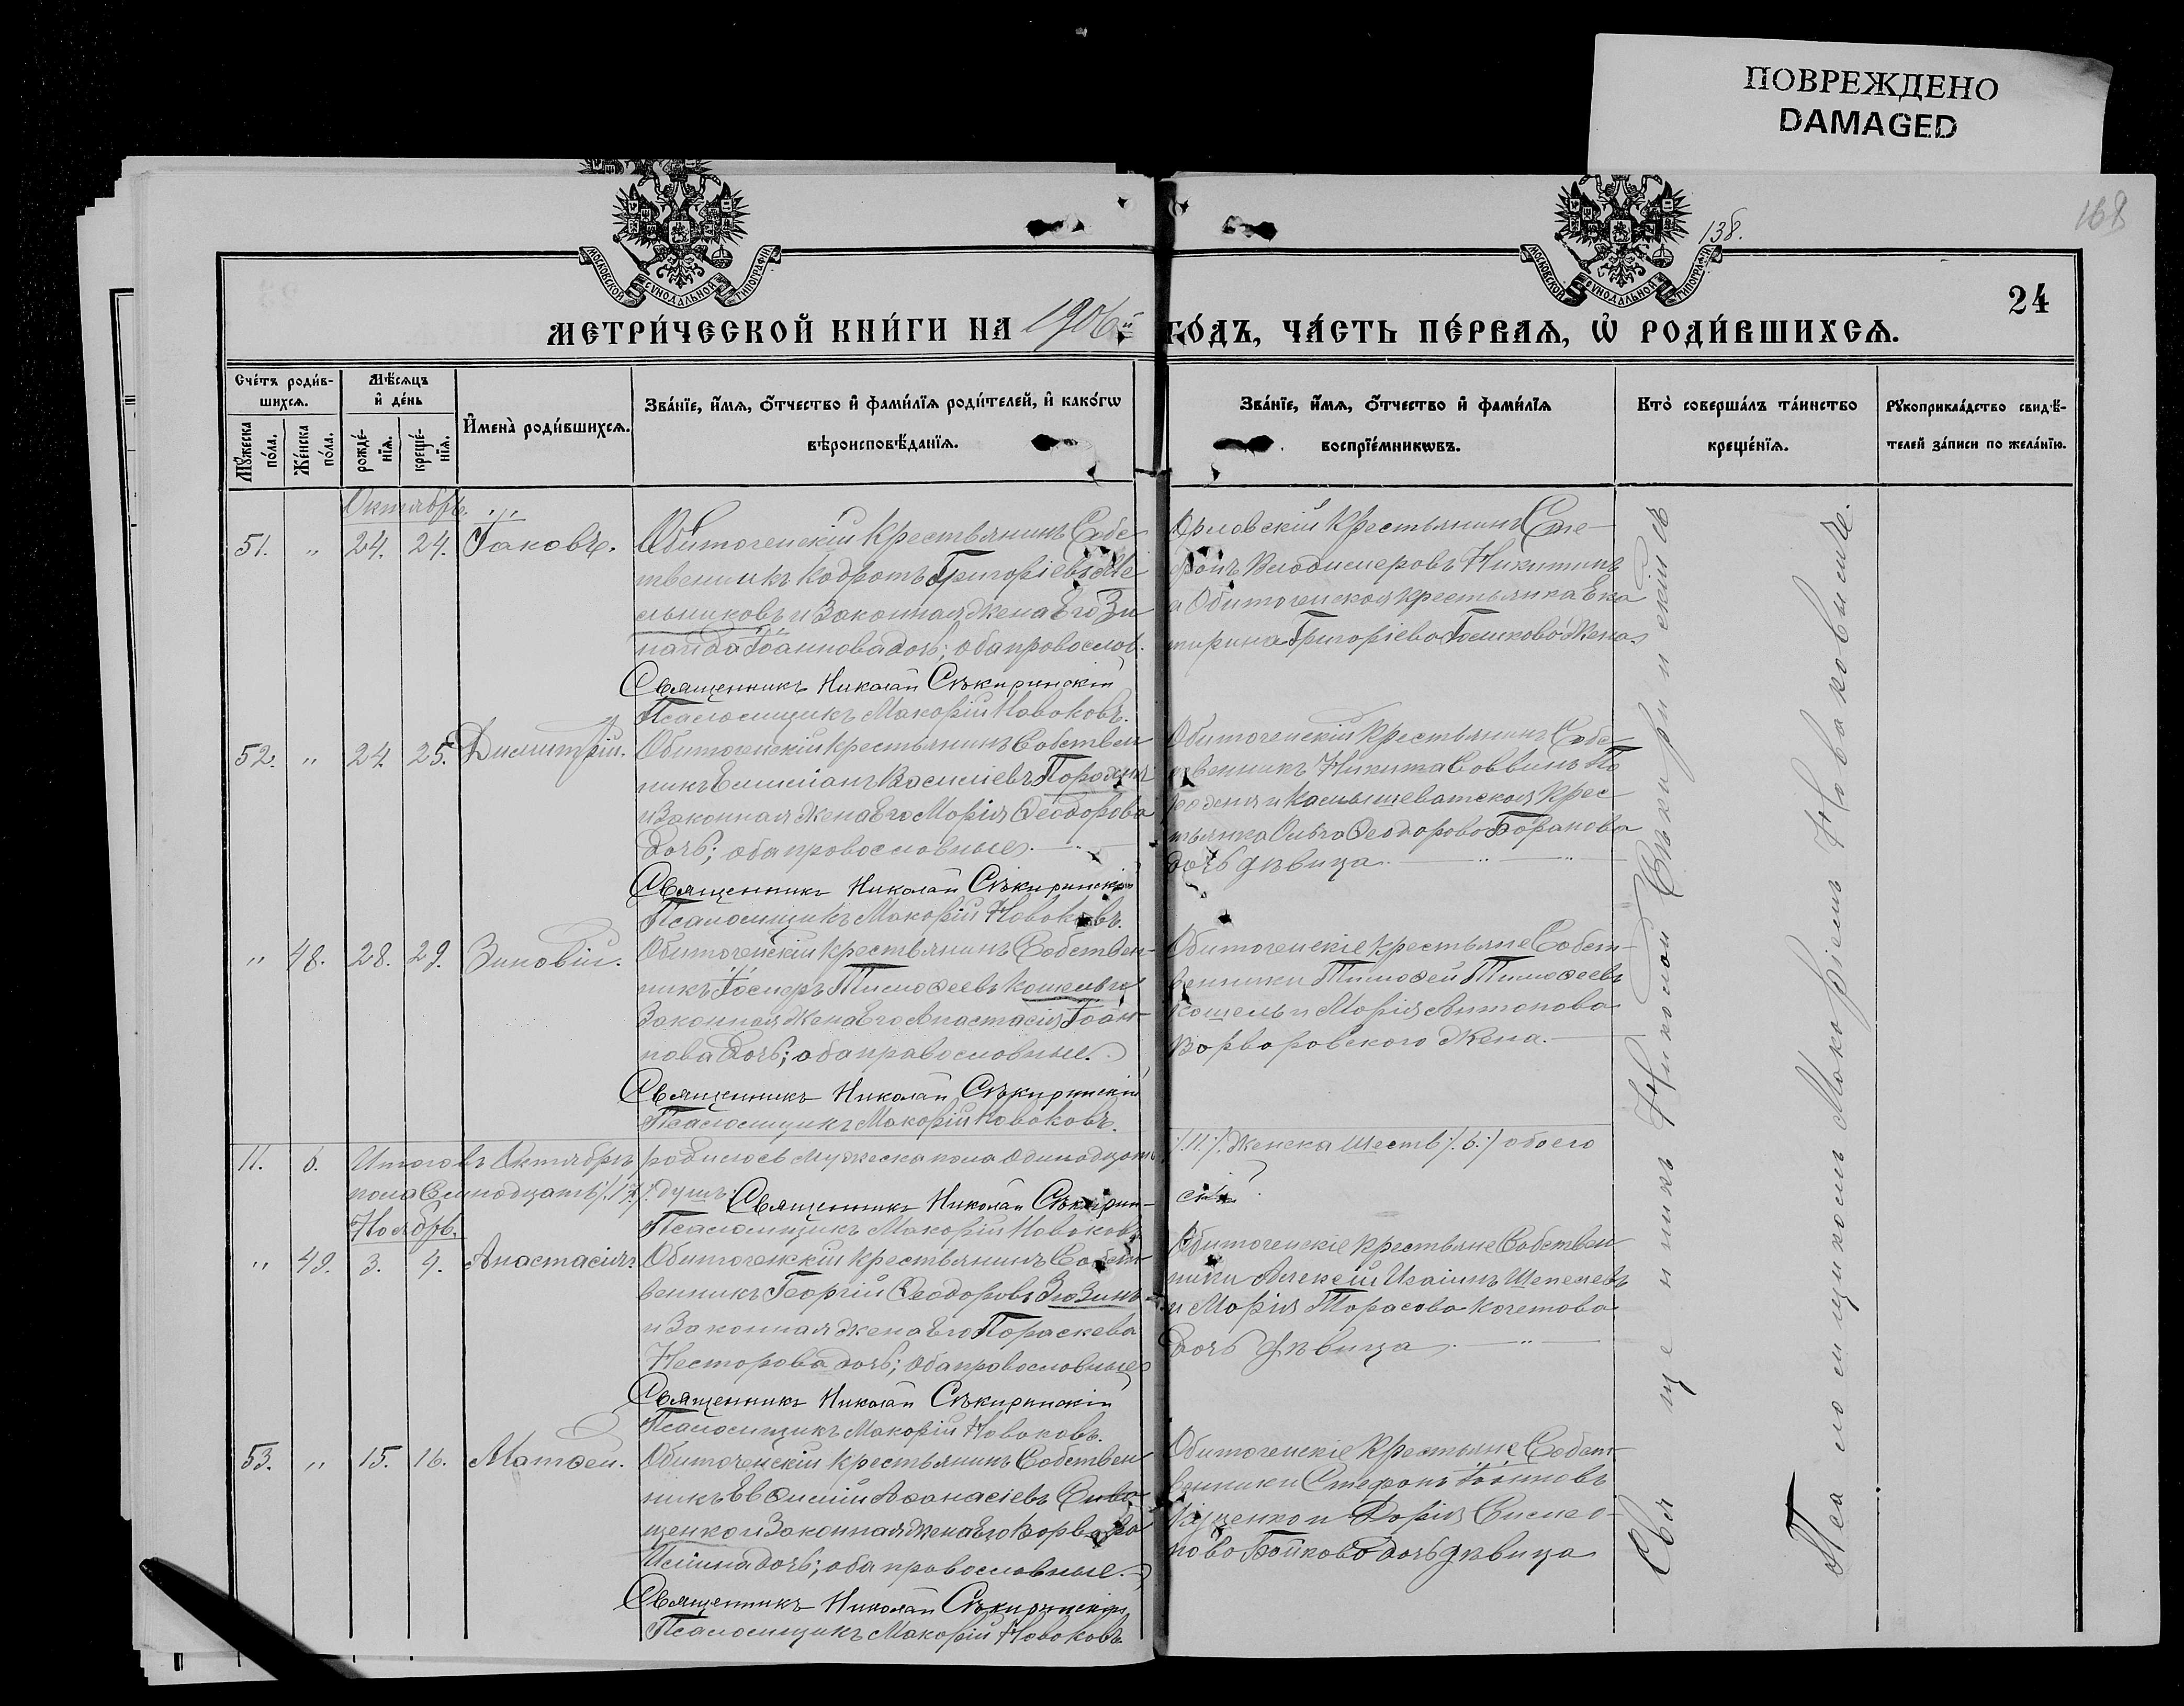 ПОВРЕЖДЕНО
DAMAGED
168
138.
24
МОСКОВСКОЙ СѴНОДАЛЬНОЙ ТИПОГРАФІИ
МОСКОВСКОЙ СѴНОДАЛЬНОЙ ТИПОГРАФІИ
МЕТРИ́ЧЕСКОЙ КНИ́ГИ НА 1906й ГО́ДЪ, ЧА́СТЬ ПЕ́РВАѦ, Ѡ҆ РОДИ́ВШИХСѦ.
Сче́тъ роди́в-
шихсѧ.
Мꙋ́жеска по́ла.
Же́нска по́ла.
Мѣ́сѧцъ и҆ де́нь
рожде́-нїѧ.
креще́-нїѧ.
И҆мена̀ роди́вшихсѧ.
Зва́нїе, и҆́мѧ, ѻ҆́тчество и҆ фами́лїѧ роди́телей, и҆ како́гѡ
вѣроисповѣ́данїѧ.
Зва́нїе, и҆́мѧ, ѻ҆́тчество и҆ фами́лїѧ
воспрїе́мникѡвъ.
Кто̀ соверша́лъ та́инство
креще́нїѧ.
Рꙋкоприкла́дство свидѣ́-
телей за́писи по жела́нїю.
Октябрь.
51. " 24. 24. Іаковъ.
Обиточенскій крестьянинъ Собс
твенникъ Кодратъ Григоріевъ Ме
льниковъ и законная жена Его Зи
наида Іоаннова дочь; оба провослов.
Священникъ Николай Сѣкиринскій
Псаломщикъ Макорій Новаковъ.
Орловскій крестьянинъ Сте-
фанъ Владимеровъ Никитинъ
а Обиточенская крестьянка Ека
тирина Григоріева Голикова жена.
52. " 24. 25. Димитрій.
Обиточенскій крестьянинъ Собствен
никъ Емиліанъ Василіевъ Породня
и законная жена Его Марія Ѳеодорова
дочь; оба провословные.
Священникъ Николай Сѣкиринскій
Псаломщикъ Макорій Новаковъ.
Обиточенскій крестьянинъ Собс
твенникъ Никита Саввинъ По
родня и Камышеватская крес
тьянка Ольга Ѳеодорова Боранова
дочь дѣвица.
" 48. 28. 29. Зиновія.
Обиточенскій крестьянинъ Собствен-
никъ Тимоѳеевъ Кошель и
законная жена Его Анастасія Іоан-
нова дочь; оба православные.
Священникъ Николай Сѣкиринскій
Псаломщикъ Макорій Новаковъ.
Обиточенскіе крестьяне Собст-
венники Тимоѳей Тимоѳеевъ
Кошель и Марія Антонова
Ворворовского жена.
11. 6. Итого въ Октябрѣ родилось мужеска пола одинодцать /.11./. женска шесть /.6./ обоего
пола Семнодцать /.17./. душъ.
Священникъ Николай Сѣкирин-скій.
Псаломщикъ Макорій Новаковъ
Ноябрь.
" 49. 3. 4. Анастасія
Обиточенскій крестьянинъ Собст-
венникъ Георгій Ѳеодоровъ
и законная жена Его Пораскева
Несторова дочь; оба провословные
Священникъ Николай Сѣкиринскій
Псаломщикъ Макорій Новаковъ.
Обиточенскіе крестьяне Собствен
ники Алексій Исаіинъ Шепелевъ
и Марія Торасова Кочетова
дочь дѣвица
53. " 15. 16. Матѳей.
Обиточенскій крестьянинъ Собствен
никъ Евѳимій Аѳонасіевъ Сиво-
щенко и законная жена Его Ворвара
дочь; оба провословные.
Священникъ Николай Сѣкиринскій
Псаломщикъ Макорій Новаковъ
Обиточенскіе крестьяне Собст-
венники Стефанъ Іоанновъ
и Дарія Симео-
нова Бойкова дочь дѣвица
Священникъ Николай Сѣкиринскій
Псаломщикомъ Макоріемъ Новаковымъ.